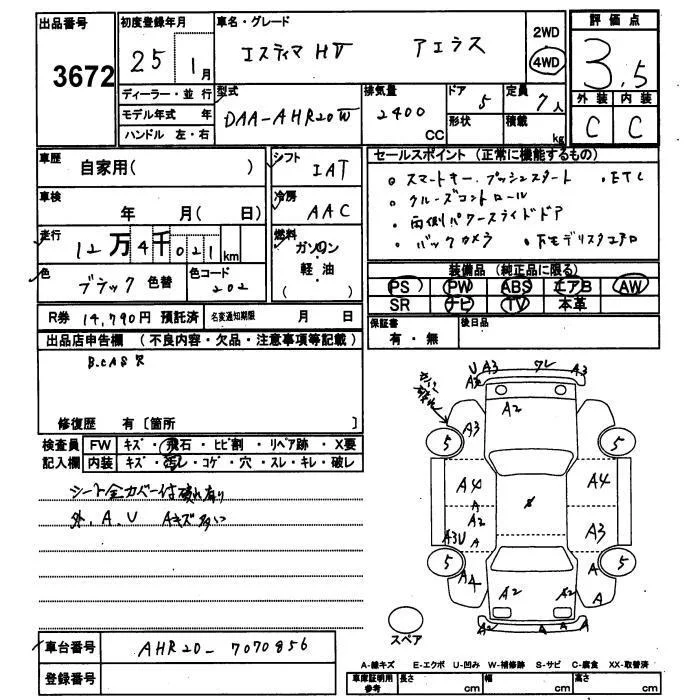 出品番号 3672
初度登録年月 25 1月
車名・グレード エスティマ HV アエラス
2WD 4WD
評価点 3.5
外装 内装
C C
ディーラー・並行
モデル年式 年
ハンドル 左・右
型式 DAA-AHR20W
排気量 2400 CC
ドア 5 形状
定員 7人 積載 kg
車歴 自家用( )
車検 年 月(日)
走行 12万4千021km
色 ブラック 色替 色コード 202
シフト IAT
冷房 AAC
燃料 ガソリン 軽・油 ( )
セールスポイント(正常に機能するもの)
。スマートキー.プッシュスタート 。ETC
。クルーズコントロール
。両側パワースライドドア
。バックカメラ
装備品(純正品に限る)
PS PW ABS エアB AW
SR ナビ TV 本革
R券 14,790円 預託済 名変通知期限 月 日
保証書 有・無 後日品
出品店申告欄(不良内容・欠品・注意事項等記載)
修復歴 有〔箇所 〕
検査員 FW キズ・飛石・ヒビ割・リペア跡・X要
記入欄 内装 キズ・汚レ・コゲ・穴・スレ・キレ・破レ
外.A.U Aキズ多い
U A3 ワレ A3
A2
A3
5 5
A4 A4
A
A2
A3U A A3
5 5
A
A4 A2 A2 A
A2 A A A
スペア
車台番号 AHR20-7070856
登録番号
A-線キズ E-エクボ U-凹み W-補修跡 S-サビ C-腐食 XX-取替済
車庫証明用参考 長さ cm 幅 cm 高さ cm